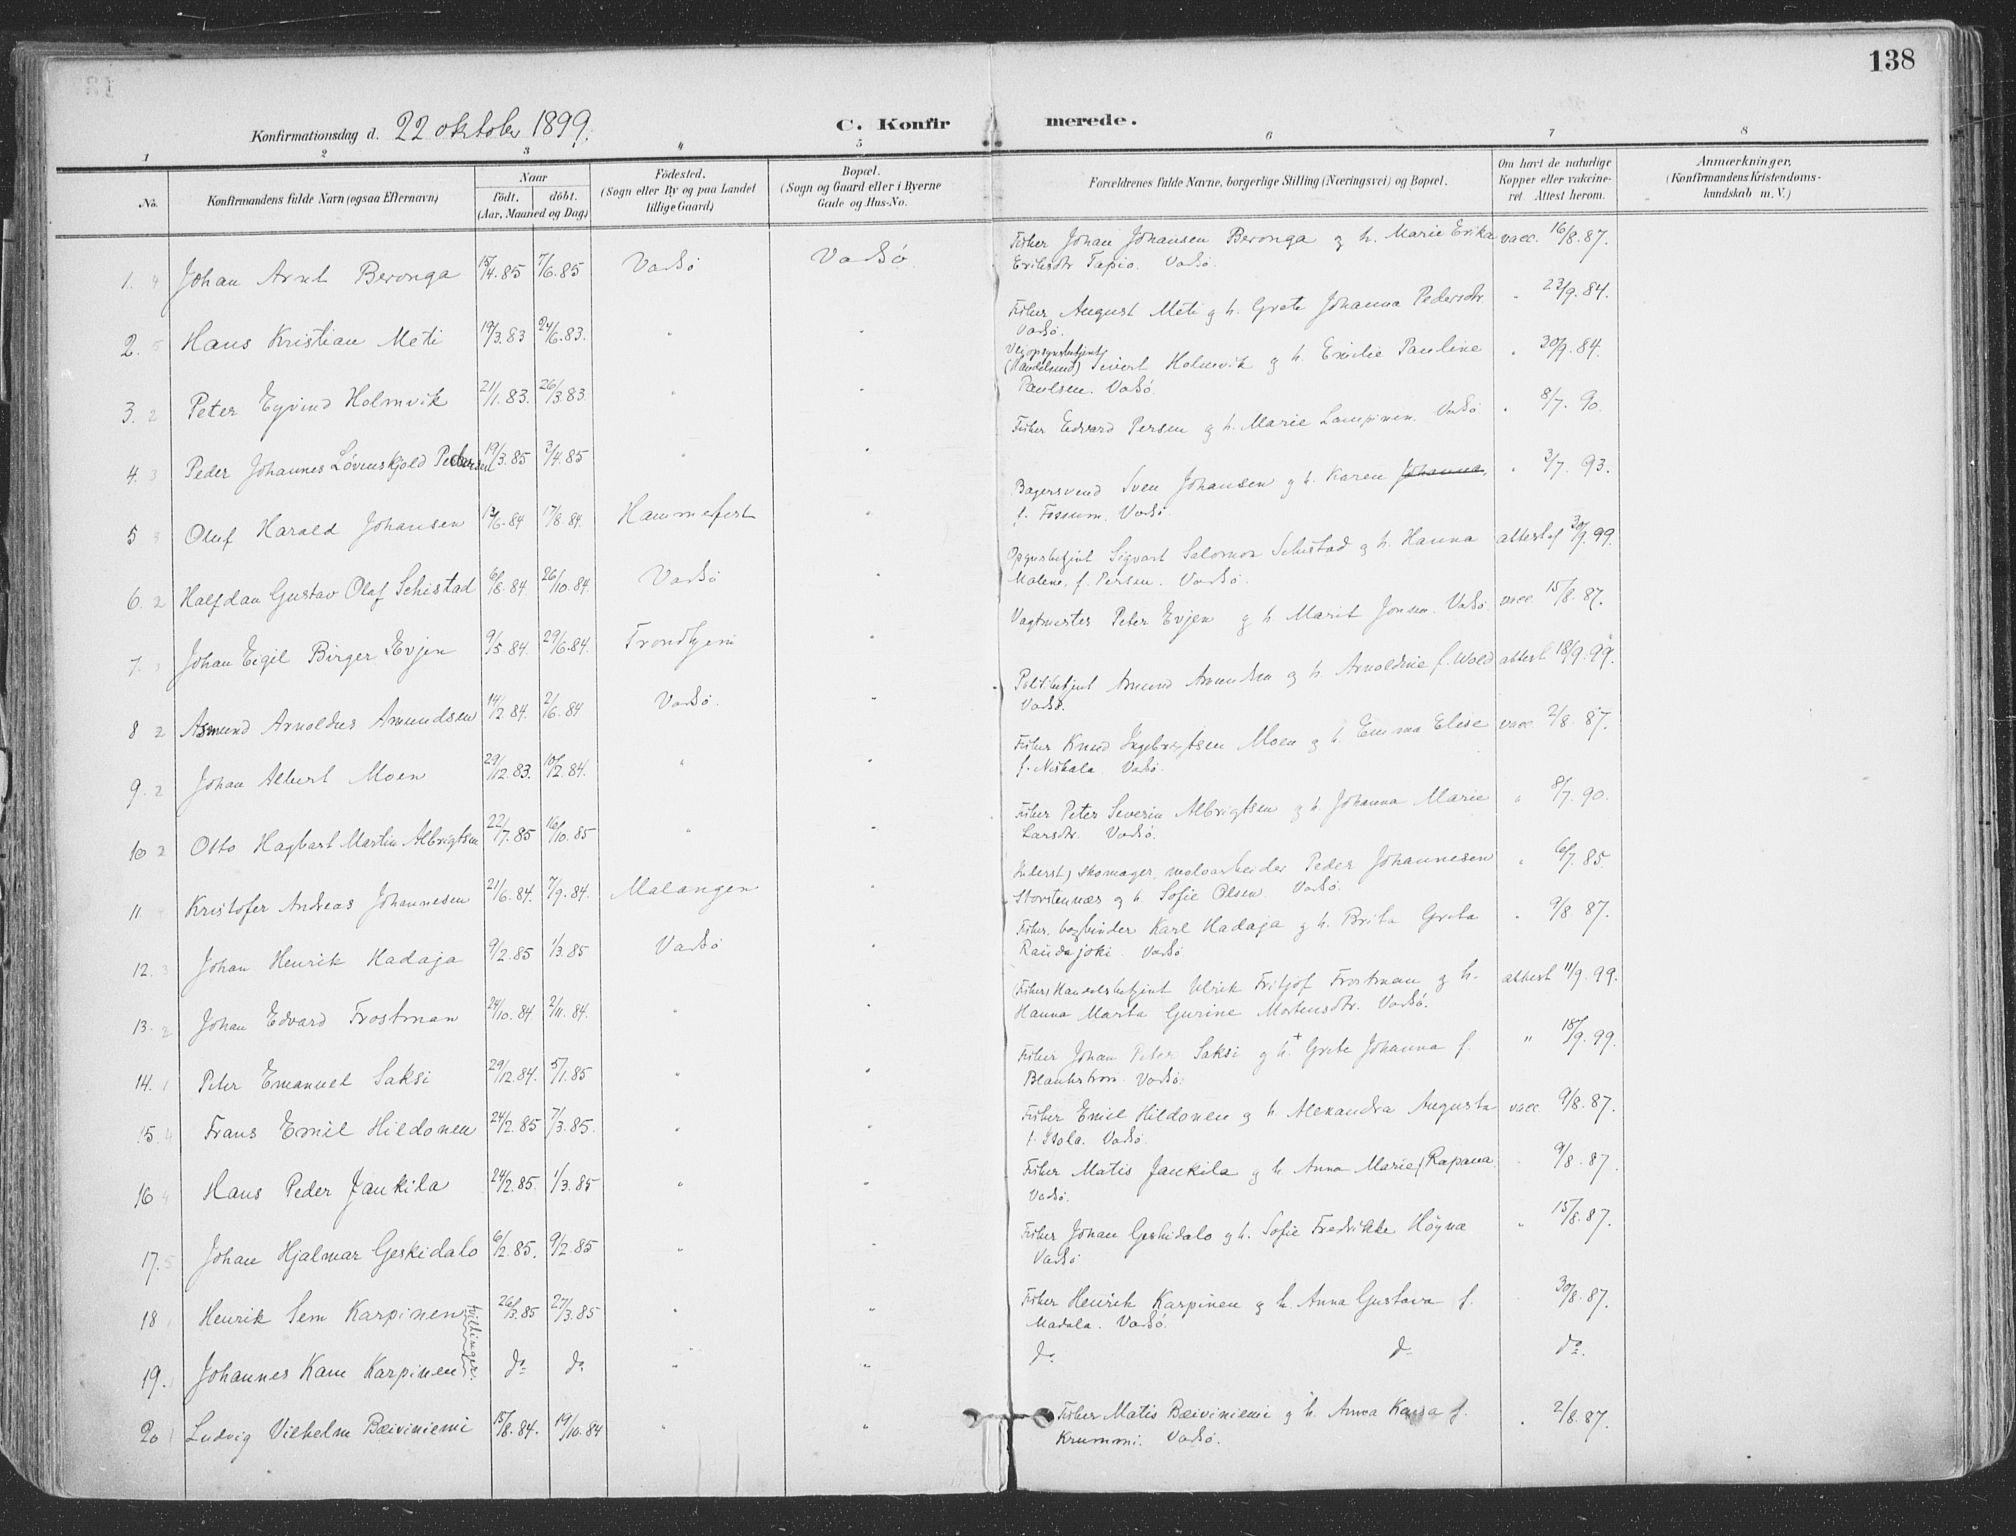 138
Konfirmationsdag d. 22 oktober 1899.
C. Konfirmerede.
1 2 3 4 5 6 7 8
No. Konfirmandens fulde Navn (ogsaa Efternavn) Naar født. døbt. (Aar, Maaned og Dag) Fødested. (Sogn eller By og paa Landet tillige Gaard) Bopæl. (Sogn og Gaard eller i Byerne Gade og Hus-No. Forældrenes fulde Navne, borgerlige Stilling (Næringsvei) og Bopæl. Om havt de naturlige Kopper eller vaccineret. Attest herom. Anmærkninger, (Konfirmandens Kristendomskundskab m. V.)
1. 4 Johan Arnt Beronga 15/4.85 7/6.85 Vadsø Vadsø Fisker Johan Johansen Beronga og h. Marie Erika vacc. 16/8.87.
Eriksdtr Tapio. Vadsø.
2. 5 Hans Kristian Meti 19/3.83 24/6.83. " " Fisker August Meti og h. Grete Johanna Pedersdtr. " 23/9.84.
Vadsø.
3. 2 Peter Eyvind Holmvik 21/1.83. 26/3.83. " " (Handelsmd) Sivert Holmvik og h. Emilie Pauline " 30/9.84.
Paulsen. Vadsø.
4. 3 Peder Johannes Løvenskjold Pedersen 19/3.85 3/4.85 " " Fisker Edvard Persen og h. Marie Lampinen. Vadsø " 8/7.90.
5 3 Oluf Harald Johansen 13/6.84 17/8.84. Hammerfest " Bagersvend Sven Johansen og h. Karen Johanna, " 3/7.93.
f. Fossum. Vadsø.
6. 2 Halfdan Gustav Olaf Sehistad 6/8.84 26/10.84. Vadsø " Opsynsbetjent Sigvart Salomon Sehistad og h. Hanna attest af 30/9.99.
Malene, f. Persen. Vadsø.
7. 3 Johan Eigil Birger Evjen 9/5.84. 29/6.84. Trondhjem " Vagtmester Peter Evjen og h. Marit Jonsen. Vadsø. vacc. 15/8.87.
8 2 Asmund Arnoldus Amundsen 14/2.84. 2/6.84 Vadsø. " Politibetjent Amund Amundsen og h. Arnoldine f. Wold attest 18/9.99.
Vadsø.
9. 2 Johan Albert Moen 29/12.83. 10/2.84. " " Fisker Knud Ingebrigtsen Moen og h. Emma Elise vacc. 2/8.87.
f. Niskala. Vadsø.
10 2 Otto Hagbart Martin Albrigtsen 22/7.85 16/10.85 " " Fisker Peter Severin Albrigtsen og h. Johanna Marie " 8/7.90.
Larsdtr. Vadsø.
11. Kristofer Andreas Johannesen 21/6.84. 7/9.84. Malangen " skomager, moloarbeider Peder Johannesen " 6/7.85
Storstennæs og h. Sofie Olsen. Vadsø.
12. 3 Johan Henrik Hadaja 9/2.85 1/3.85 Vadsø " Fisker, bogbinder Karl Hadaja og h. Brita Greta " 9/8 87.
Raudajoki. Vadsø
13. 2 Johan Edvard Frostman 24/10.84 2/11.84. " " (Fisker) Handelsbetjent Ulrik Fritjof Frostman og h. attest 11/9.99.
Hanna Marta Gurine Mortensdtr. Vadsø.
14. 1 Peter Emanuel Saksi 29/12.84. 5/1.85 " " Fisker Johan Peter Saksi og h.+ Grete Johanna f. " 18/9.99.
Blankstrøm. Vadsø.
15. 4 Frans Emil Hildonen 24/2.85 7/3.85. " " Fisker Emil Hildonen og h. Alexandra Augusta vacc. 9/8.87.
f. Isola. Vadsø.
16 4 Hans Peder Jankila 24/2.85 1/3.85 " " Fisker Matis Jankila og h. Anna Marie Rapana " 9/8.87.
Vadsø.
17. 5 Johan Hjalmar Geskidalo 6/2.85. 9/2.85 " " Fisker Johan Geskidalo og h. Sofie Fredrikke Høyna " 15/8.87.
Vadsø
18 Henrik Sem Karpinen tvillinger. 26/3.85 27/3.85 " " Fisker Henrik Karpinen og h. Anna Gustava f. 30/8.87.
Madala. Vadsø.
19. Johannes Kam Karpinen do do " " do do do.
20 Ludvig Vilhelm Bæiviniemi 15/8.84. 19/10.84 " " Fisker Matis Bæiviniemi og h. Anna Kaisa f. " 2/8.87.
Krummi. Vadsø.